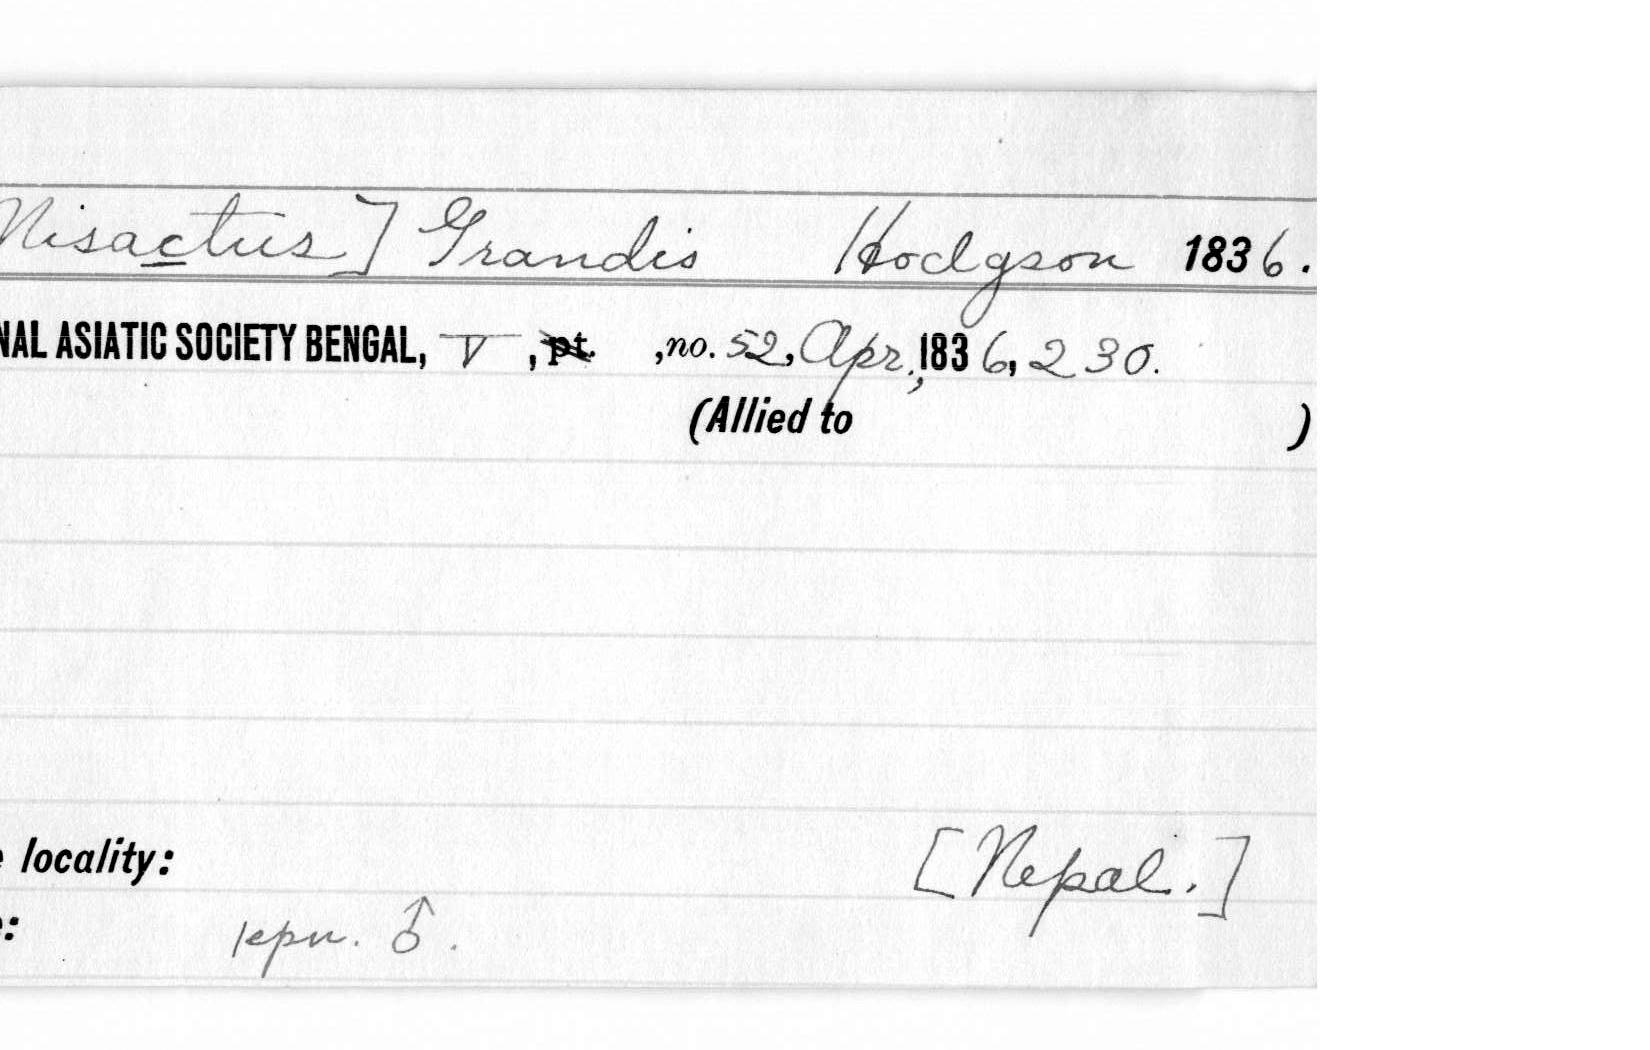 Nisactus] Grandis Hodgson 1836.
NAL ASIATIC SOCIETY BENGAL, V, pt. , no. 52, Apr., 1836, 230.
(Allied to )
e locality: [Nepal.]
e: ♂.